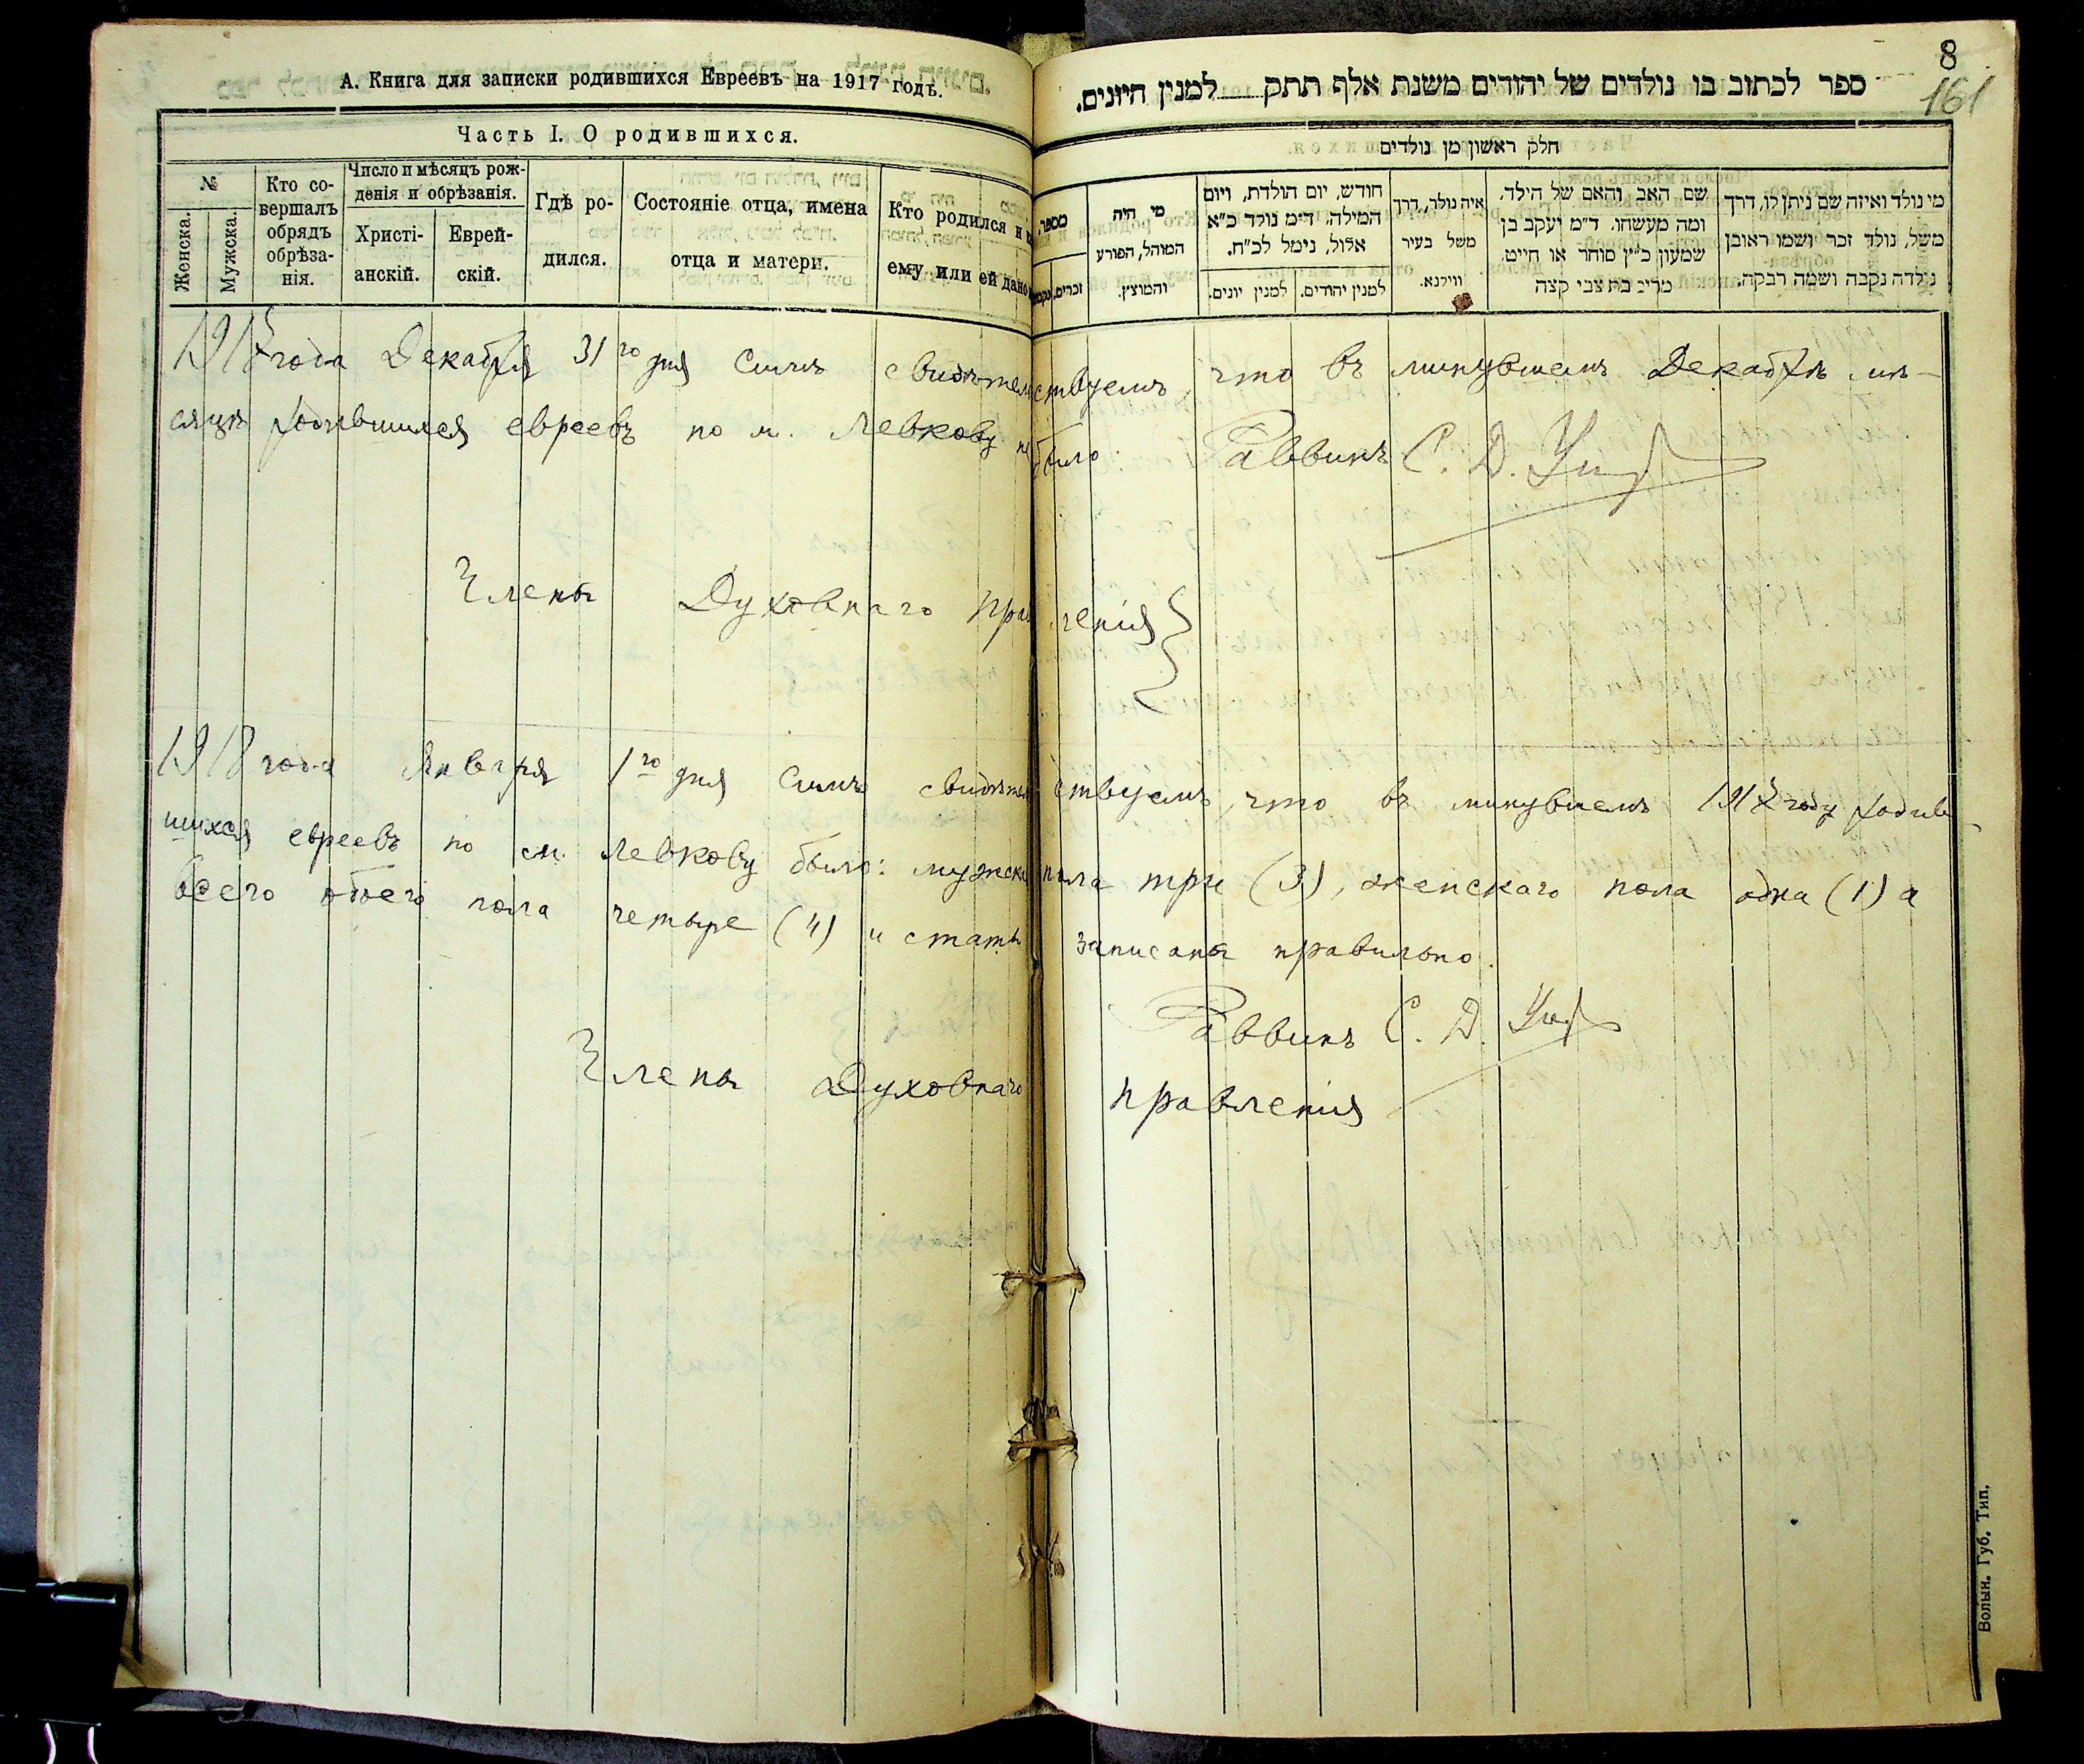 А. Книга для записки родившихся Евреевъ на 1917 годъ.
Часть I. О родившихся.
№
Женска.
Мужска.
Кто со-
вершалъ
обрядъ
обрѣза-
нія.
Число и мѣсяцъ рож-
денія и обрѣзанія.
Христі-
анскій.
Еврей-
скій.
Гдѣ ро-
дился.
Состояніе отца, имена
отца и матери.
Кто родился и
ему или ей дано
8
161
ספר לכתוב בו נולדים של יהודים משנת אלף תתק למנין היונים.
חלק ראשון מן נולדים
מספר
זכרים.
מי היה
המוהל, הפורע
והמוצץ.
חודש, יום תולדת, ויום
המילה. ד״מ נולד כ״א
אלול, נימל לכ״ח.
למנין יהודים.
למנין יונים.
איה נולד, דרך
משל בעיר
ווילנא.
שם האב והאם של הילד,
ומה מעשהו. ד״מ יעקב בן
שמעון כ״ץ סוחר או חייט,
מריב בת צבי קצה
מי נולד ואיזה שם ניתן לו, דרך
משל, נולד זכר ושמו ראובן
נולדה נקבה ושמה רבקה.
1917 года Декабря 31го дня Симъ свидѣтельствуемъ, что въ минувшемъ Декабрѣ мѣ-
сяцѣ родившихся евреевъ по м. Левкову не было Раввинъ С. Д.
Члены Духовнаго Правленія
1918 года Января 1го дня Симъ свидѣтельствуемъ, что въ минувшемъ 1917 году родив-
шихся евреевъ по м. Левкову было: мужска пола три (3), женскаго пола одна (1) а
всего обоего пола четыре (4) и статьи записаны правильно.
Раввинъ С. Д.
Члены Духовнаго правленія
Волын. Губ. Тип.